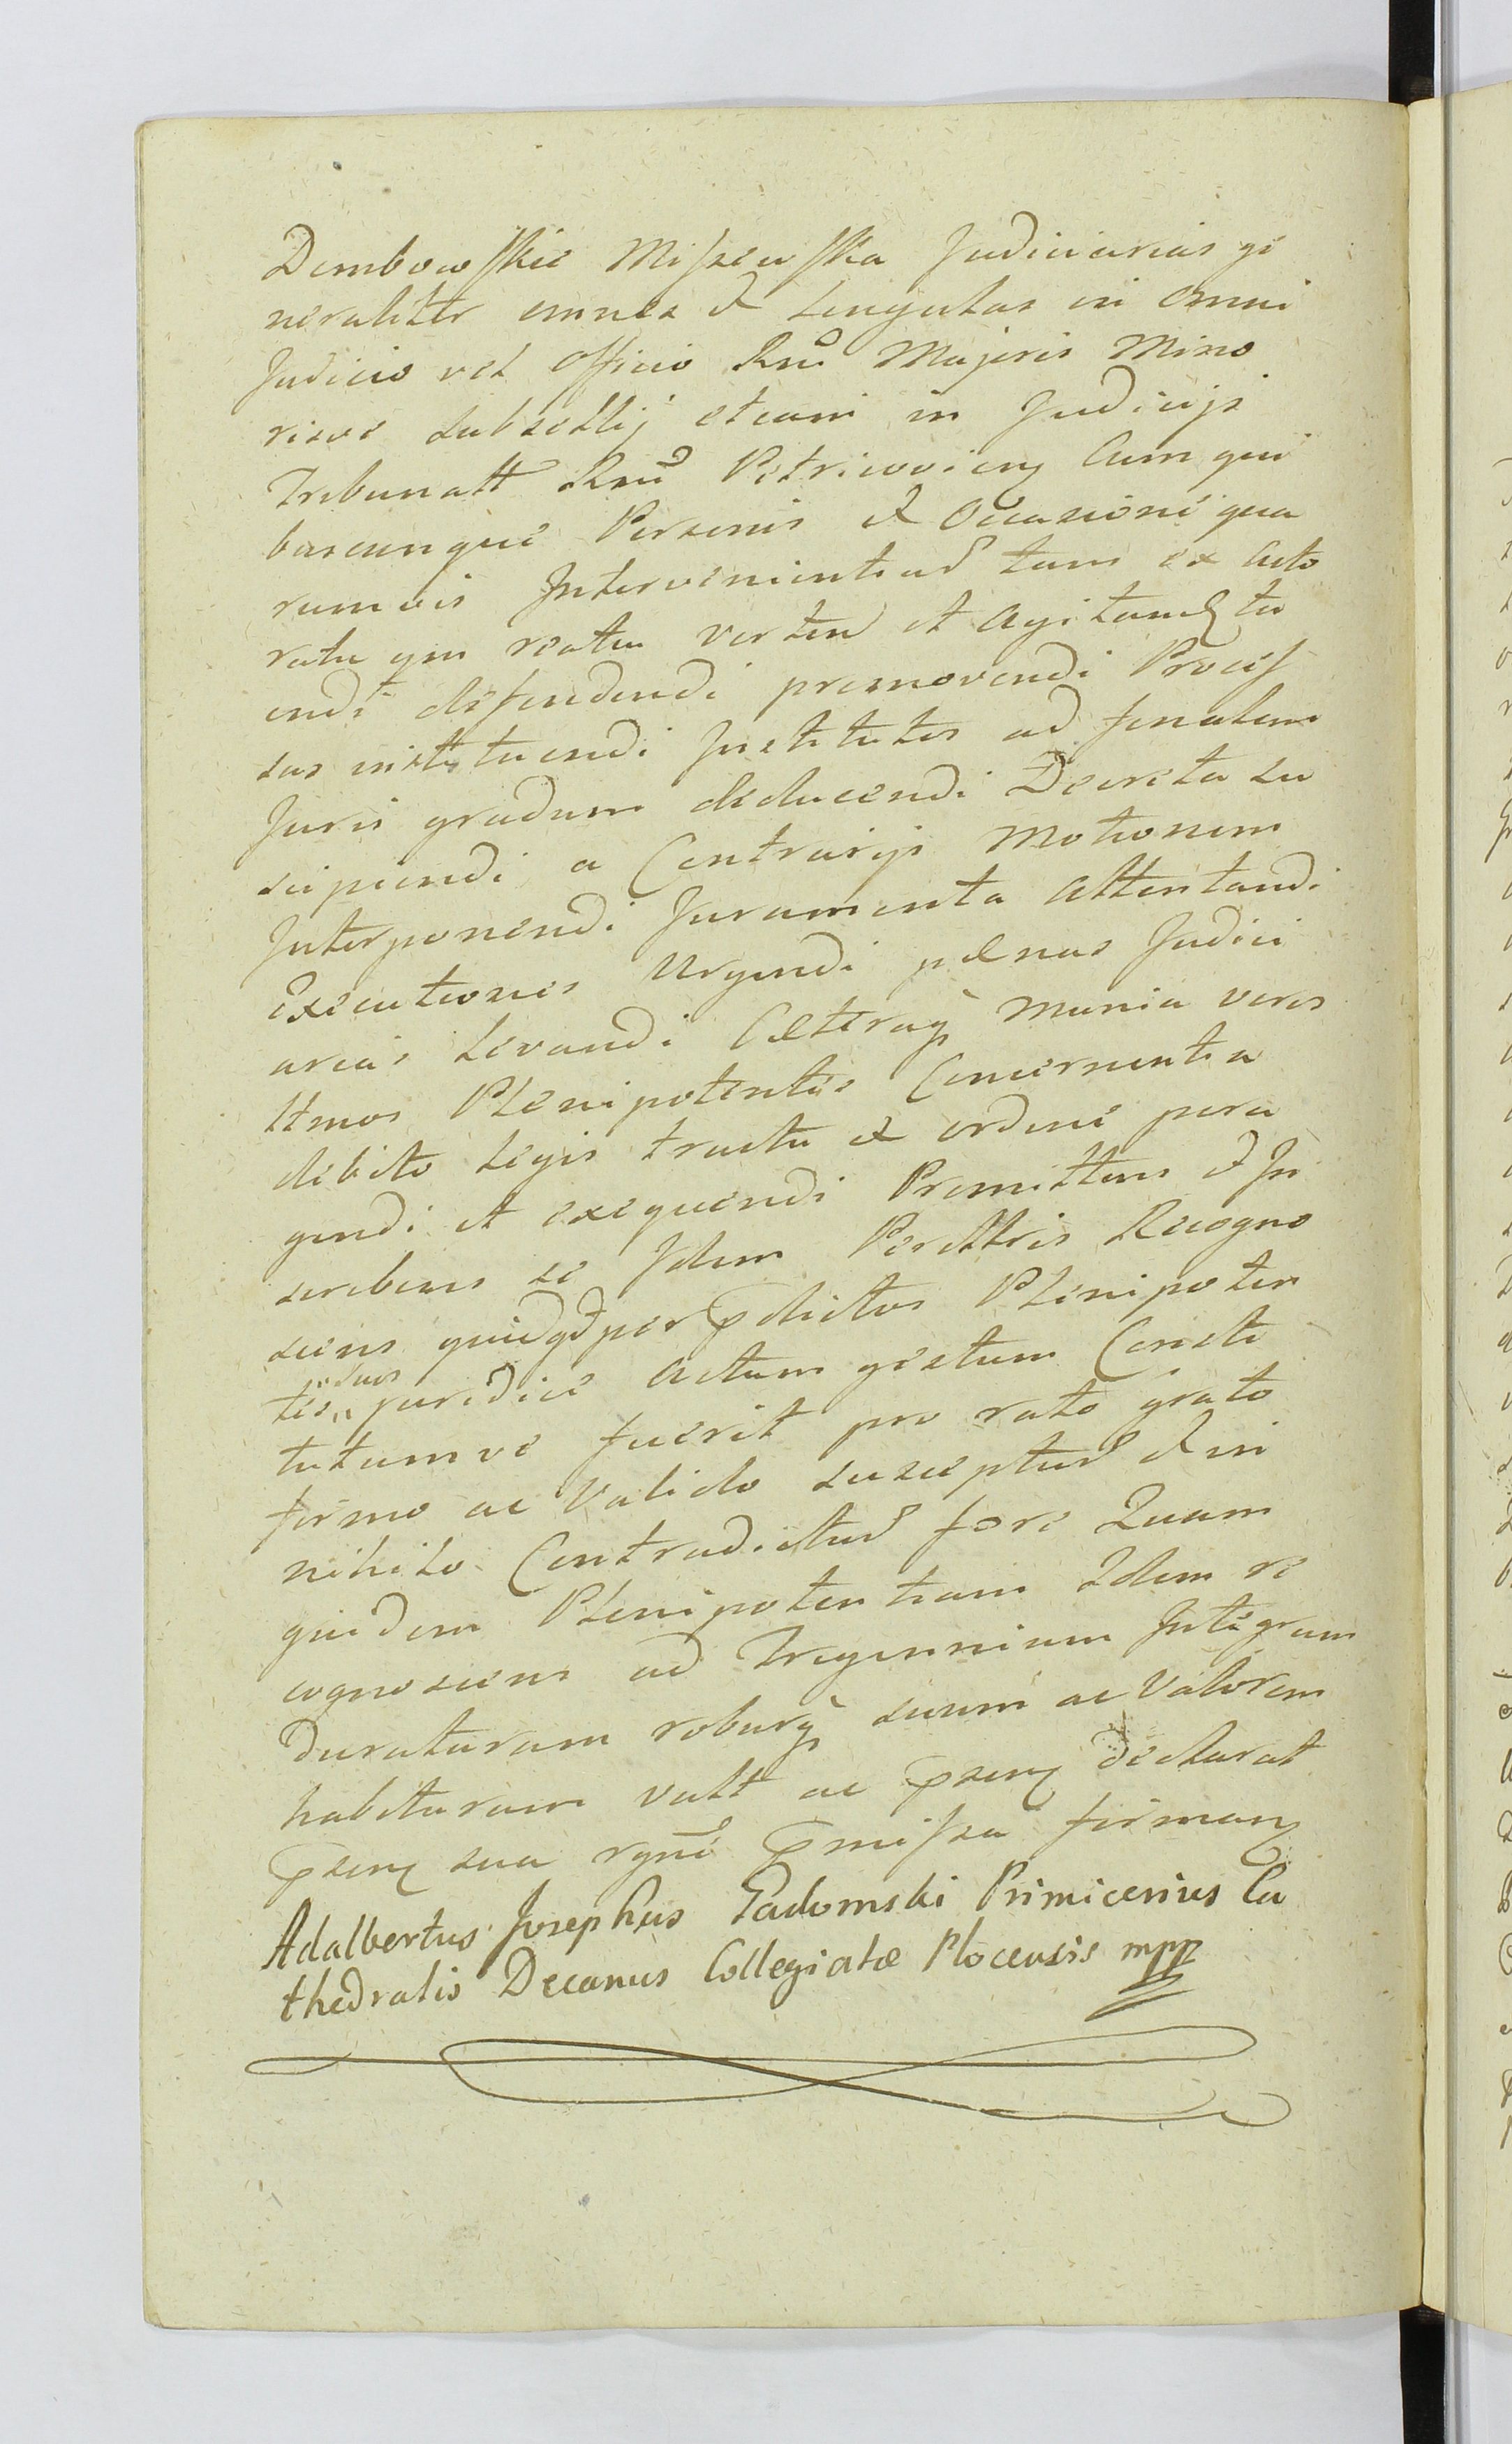 Dembowskie Misżewska Judiciarias ge
neraliter omnes et singulas in omni
Judicio vel Officio Rni Majoris Mino
risve subsellij etiam in Judicijs
Tribunatt Rni Petricovien Cum qui
buscunque Personis et Occasione qua
rumvis Intervenientiad tam ex acto
ratu qm reatu verten et agitand tu
endi defendendi promovendi Proces
sus instituendi Institutes ad finalem
Juris gradum deducendi Decreta su
scipiendi a Contrarijs Motionem
Interponendi Juramenta Attentandi
Executiones Urgendi pænas Judici
arias Levandi Cæteraq Munia veros
Itmos Plenipotentes Concernentia
debito Legis tractu et ordine pera
gendi et exequendi Promittens et In
scribens se Idem Perillris Recogno
scens quidqd per pdictos Plenipoten
tes suos juridice Actum gestum Consti
tutumve fuerit pro rato grato
firmo ac Valido suscepturd et in
nihilo Contradicturd fore Quam
quidem Plenipotentiam Idem re
cognoscens ad Tregennium Integrum
duraturam roburq suum ac Valorem
habituram vult ac psenq declarat
psenq sua rgne pmissa firmanq
Adalbertus Josephus Gadomski Primicerius Ca
thedralis Decanus Collegiatæ Plocensis mpp